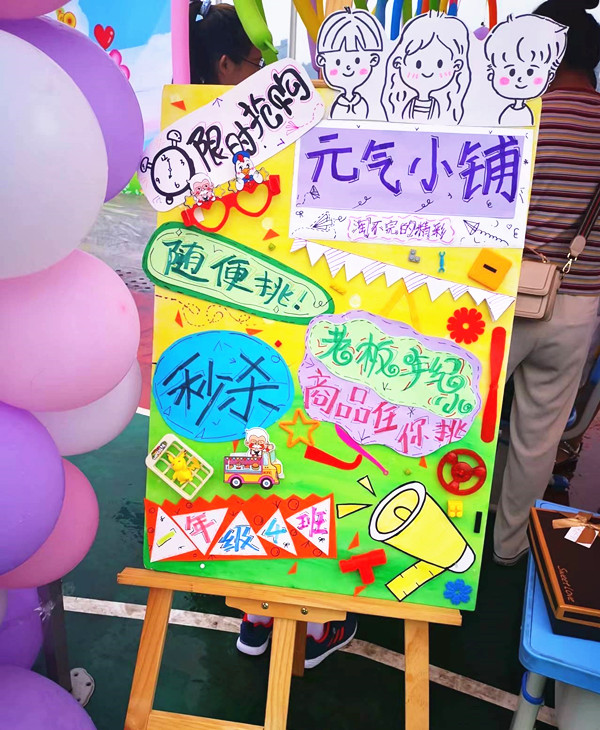 限时抢购
元气小铺
淘不完的精彩
随便挑!
老板年纪小
商品任你挑
秒杀
一年级4班
Sweet Love